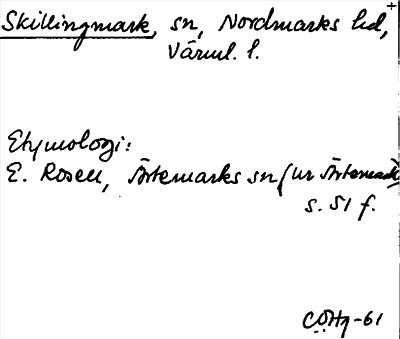 Skillingmark, sn, Nordmarks hd,
Värml. l.
Etymologi:
E. Rosell, Ärtemarks sn (ur Ärtemark)
s. 51 f.
CÖHq-61